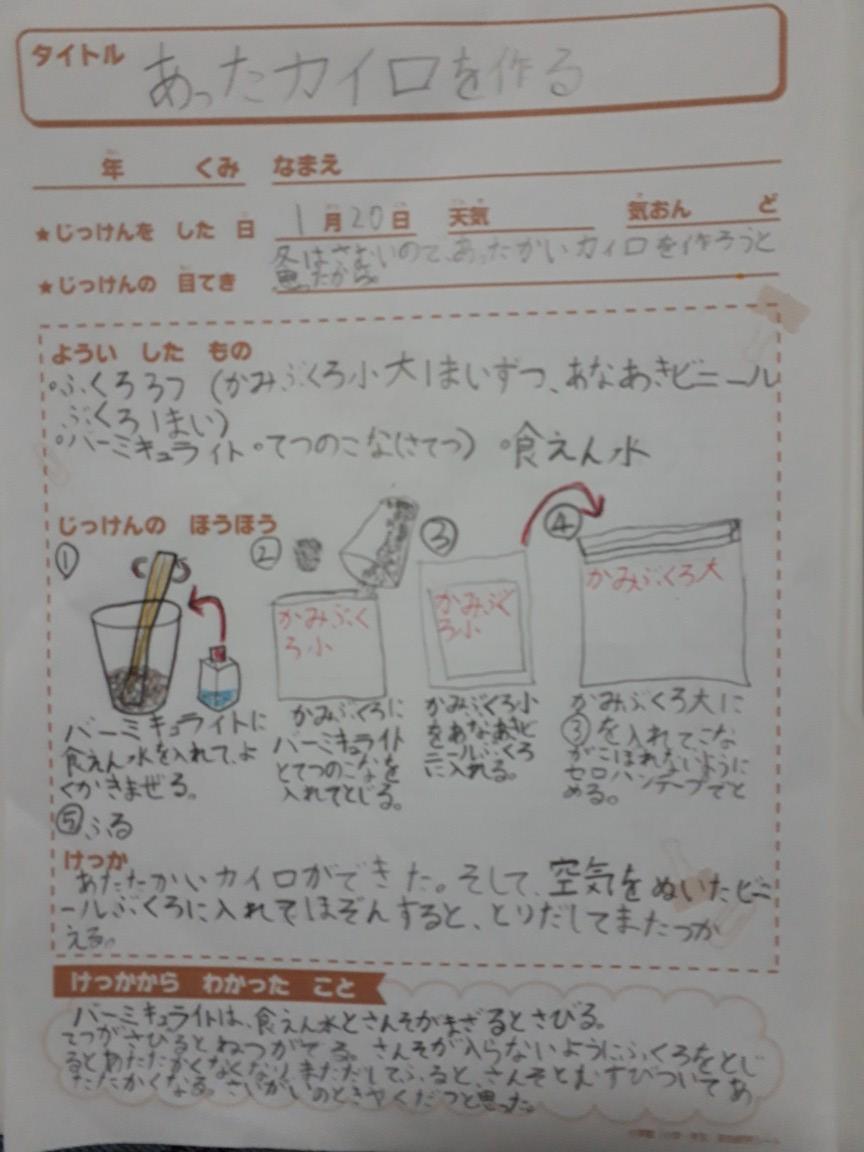 タイトル あったカイロを作る
年 くみ なまえ
★じっけんを した 日 1月20日 天気 気おん ど
★じっけんの 目てき 冬はさむいので、あったかいカイロを作ろうと
思ったから。
ようい した もの
・ふくろ3つ(かみぶくろ小大1まいずつ、あなあきビニール
ぶくろ1まい)
・バーミキュライト・てつのこな(さてつ) ・食えん水
じっけんの ほうほう
①
②
③
④
かみぶく
ろ小
かみぶく
ろ小
かみぶくろ大
バーミキュライトに
食えん水を入れて、よ
くかきまぜる。
かみぶくろに
バーミキュライト
とてつのこなを
入れてとじる。
かみぶくろ小
をあなあきビ
ニールぶくろ
に入れる。
かみぶくろ大に
③を入れて、こな
がこぼれないように
セロハンテープでと
める。
⑤ふる
けっか
あたたかいカイロができた。そして、空気をぬいたビニ
ールぶくろに入れてほぞんすると、とりだしてまたつか
える。
けっかから わかった こと
バーミキュライトは、食えん水とさんそがまざるとさびる。
てつがさびるとねつがでる。さんそが入らないようにふくろをとじ
るとあたたかくなくなり、まただしてふると、さんそとむすびついてあ
たたかくなる。さいがいのときやくだつと思った。